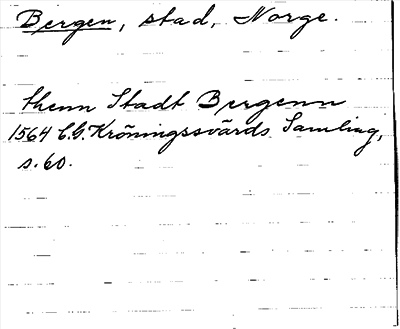 Bergen, stad, Norge.
thenn Stadt Bergenn
1564 C.G. Kröningssvärds Samling,
s. 60.